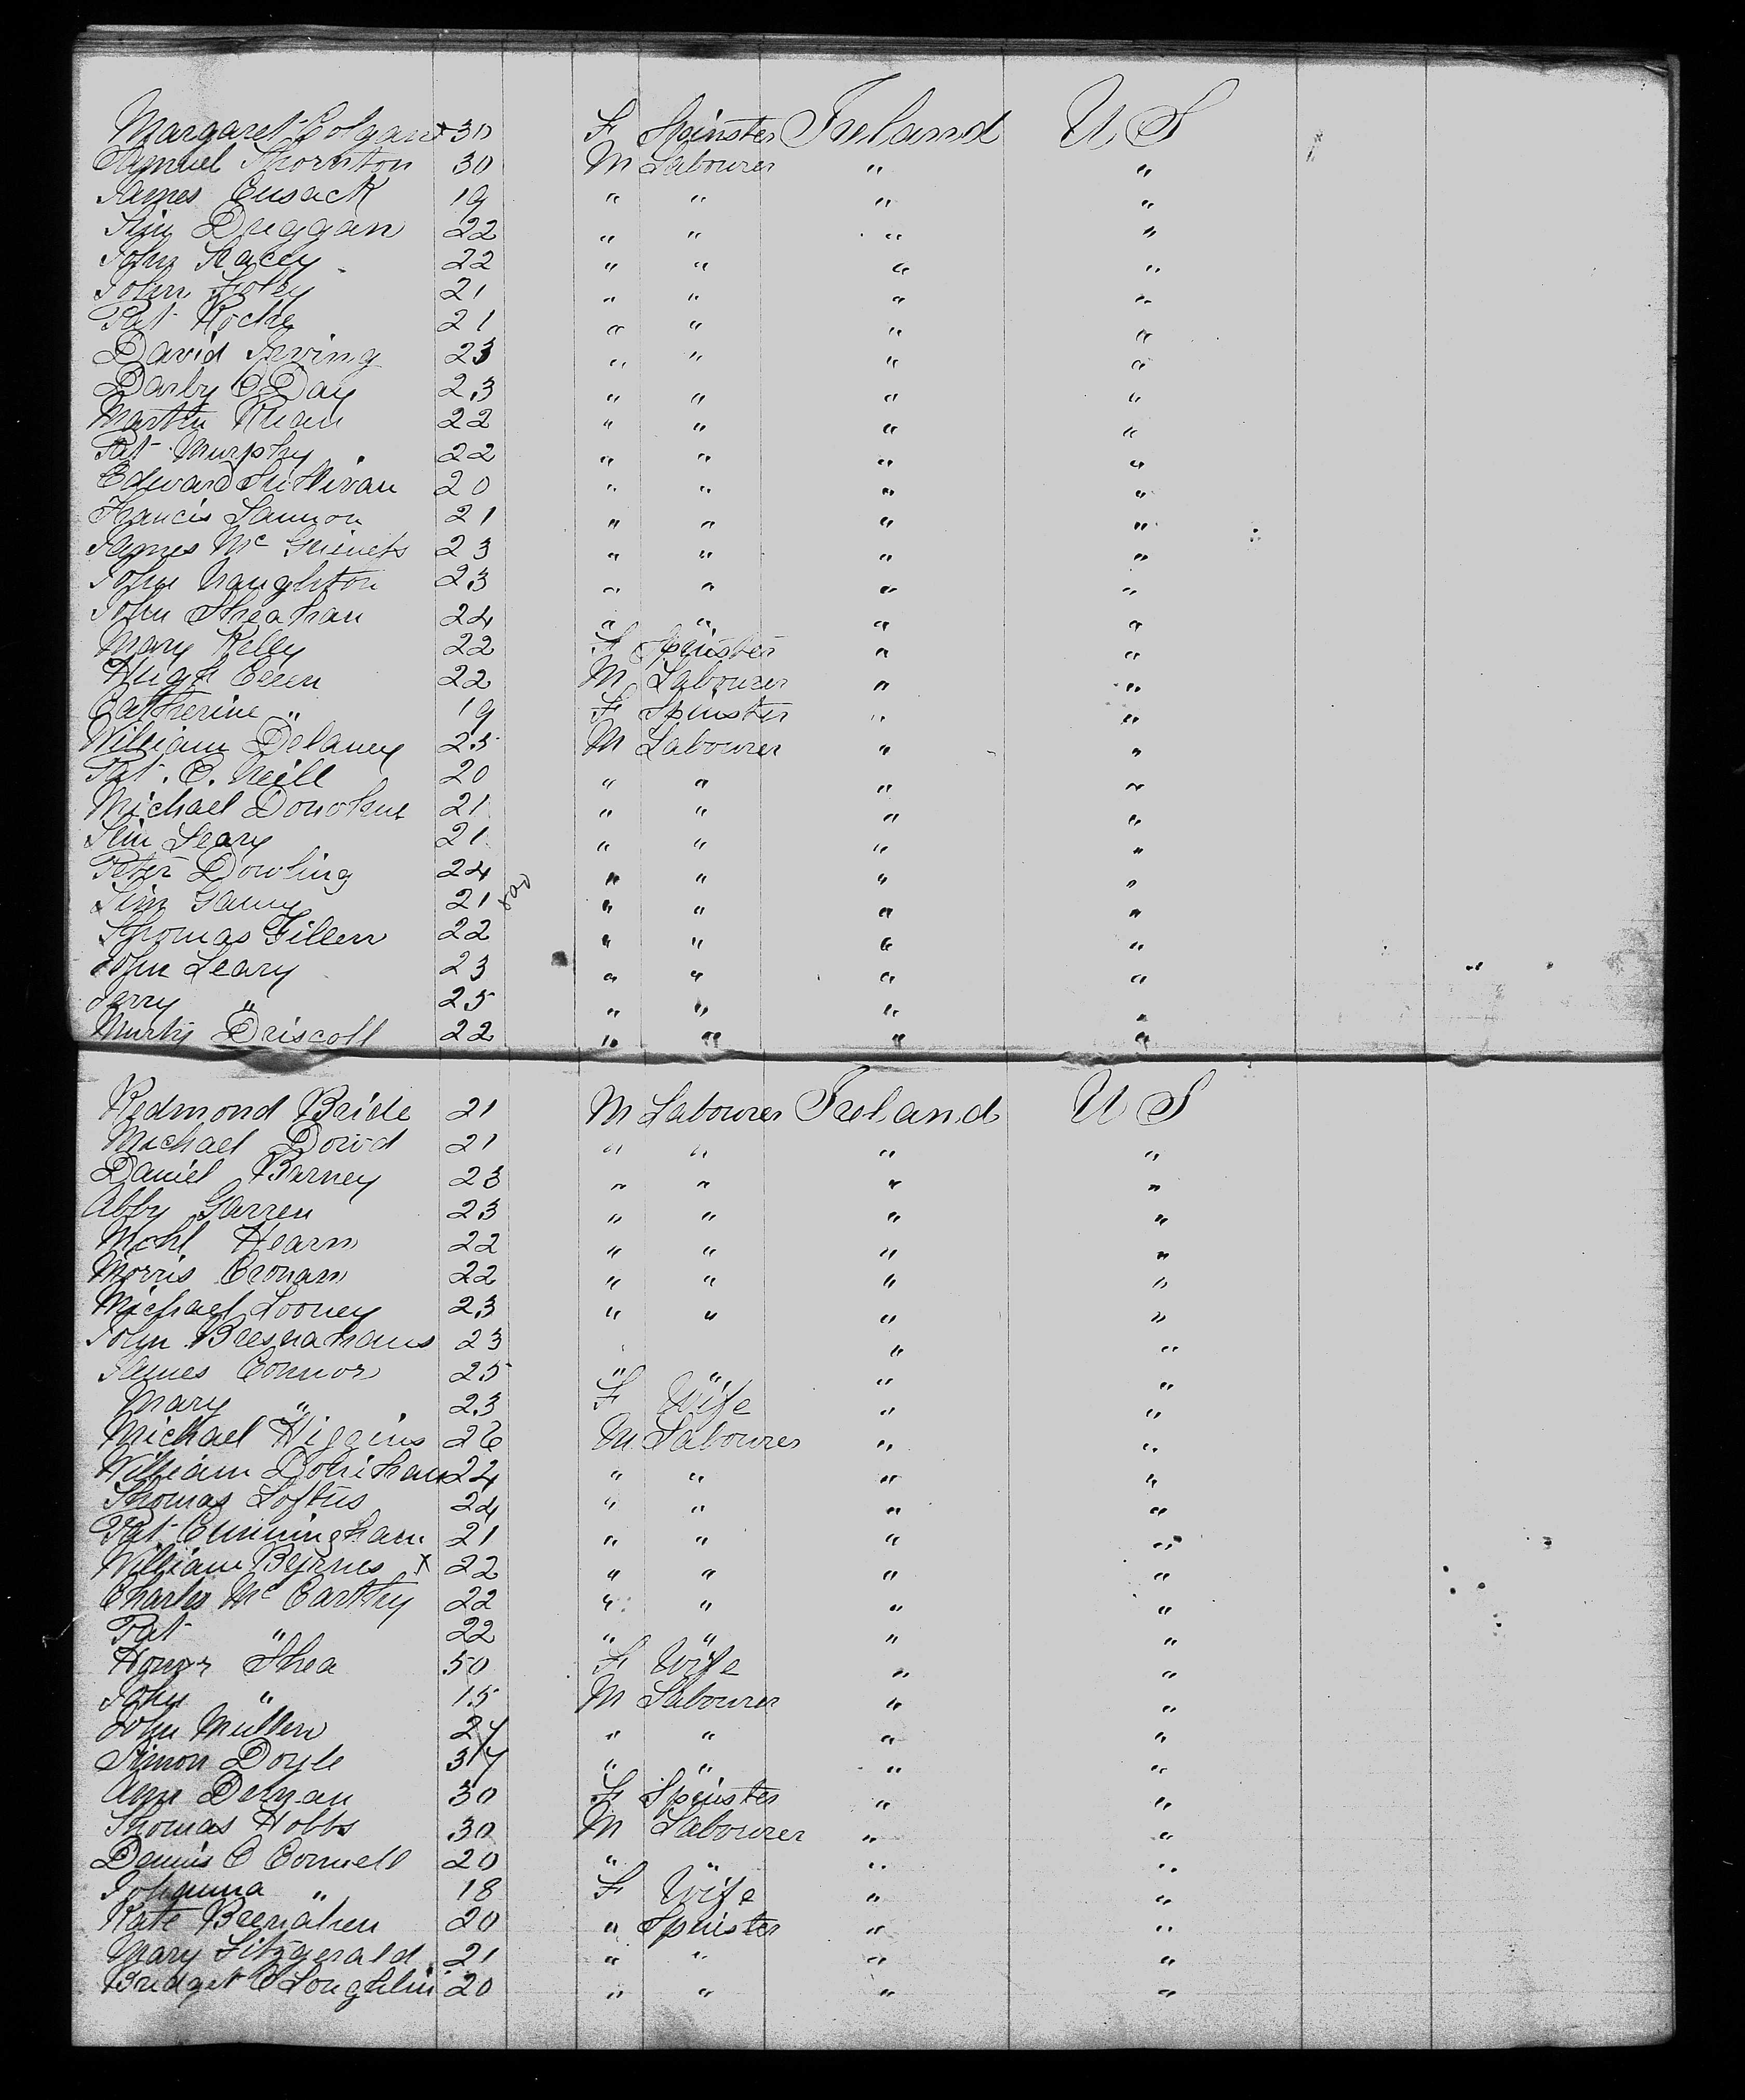 Margaret Colgan x 30 F Spinster Ireland U S
Samuel Thornton 30 M Labourer " "
James Cusack 19 " " " "
Jim Duggan 22 " " " "
John Stacey 22 " " " "
John Foley 21 " " " "
Pat Roche 21 " " " "
David Irving 23 " " " "
Darby O Day 23 " " " "
Martin 22 " " " "
Pat Murphy 22 " " " "
Edward Sullivan 20 " " " "
Francis Lannon 21 " " " "
James Mc 23 " " " "
John Naughton 23 " " " "
John Sheahan 24 " " " "
Mary Kelly 22 F Spinster " "
Hugh 22 M Labourer " "
Catherine " 19 F Spinster " "
William Delaney 25 M Labourer " "
Pat. O. Neill 20 " " " "
Michael Donohue 21 " " " "
Jim Leary 21 " " " "
Peter Dowling 24 " " " "
Jim 21 " " " "
Thomas Fillen 22 " " " "
John Leary 23 " " " "
Jerry " 25 " " " "
Murty Driscoll 22 " " " "
Redmond Bride 21 M Labourer Ireland U S
Michael Dowd 21 " " " "
Daniel Barney 23 " " " "
Abby Garren 23 " " " "
Mchl Hearn 22 " " " "
Morris Cronan 22 " " " "
Michael Looney 23 " " " "
John Bresnahans 23 " "
James Connor 25 " " " "
Mary " 23 F Wife " "
Michael Higgins 26 M Labourer " "
William 24 " " " "
Thomas Loftus 24 " " " "
Pat Cunningham 21 " " " "
William Byrnes x 22 " " " "
Charles Mc Carthy 22 " " " "
Pat " 22 " " " "
Honor Shea 50 F Wife " "
John " 15 M Labourer " "
John Mullen 27 " " " "
Simon Doyle 37 " " " "
Ann Dernan 30 F Spinster " "
Thomas Hobbs 30 M Labourer " "
Dennis O Connell 20 " " " "
Johanna " 18 F Wife " "
Kate 20 " Spinster " "
Mary Fitzgerald 21 " " " "
Bridget O Loughlin 20 " " " "